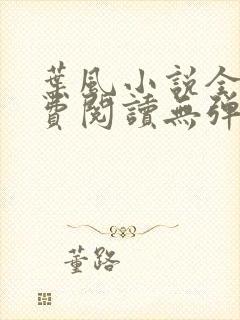 葉風小說全
費閱讀無彈
董路